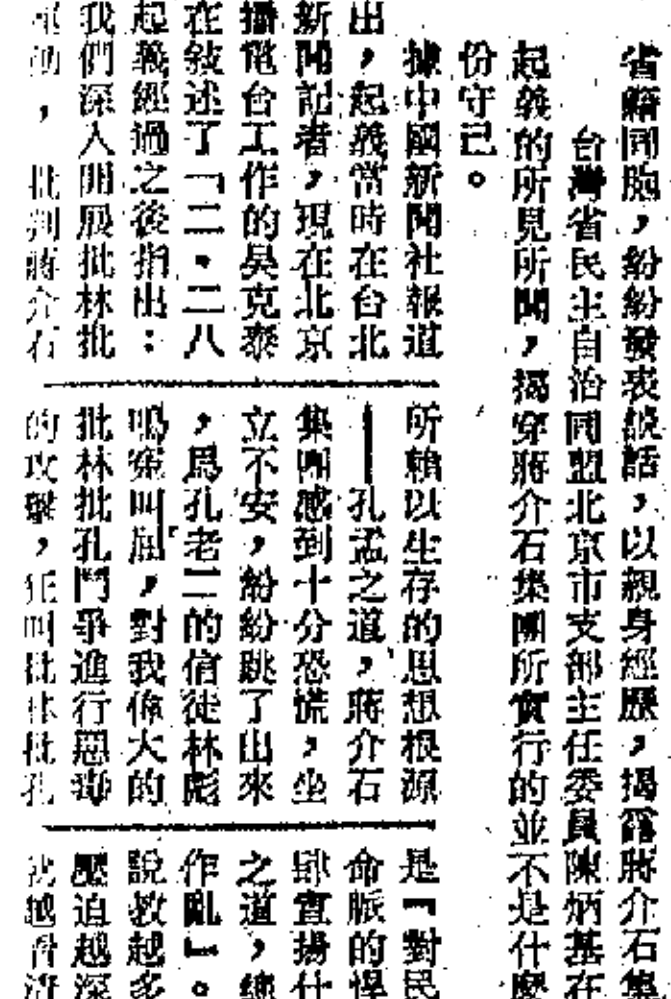 省籍同胞，紛紛發表談話，以親身經歷，揭露蔣介石集
台灣省民主自治同盟北京市支部主任委員陳炳基在
起義的所見所聞，揭穿蔣介石集團所實行的並不是什麼
份守己。
據中國新聞社報道
出，起義當時在台北
新聞記者，現在北京
播電台工作的吳克泰
在敍述了「二·二八
起義經過之後指出：
我們深入開展批林批
運動，批判蔣介石
所賴以生存的思想根源
——孔孟之道，蔣介石
集團感到十分恐慌，坐
立不安，紛紛跳了出來
，爲孔老二的信徒林彪
鳴寃叫屈，對我偉大的
批林批孔鬥爭進行惡毒
的攻擊，狂叫批林批孔
是「對民
命脈的悍
肆宣揚什
之道，總
作亂」。
說教越多
壓迫越深
越看清